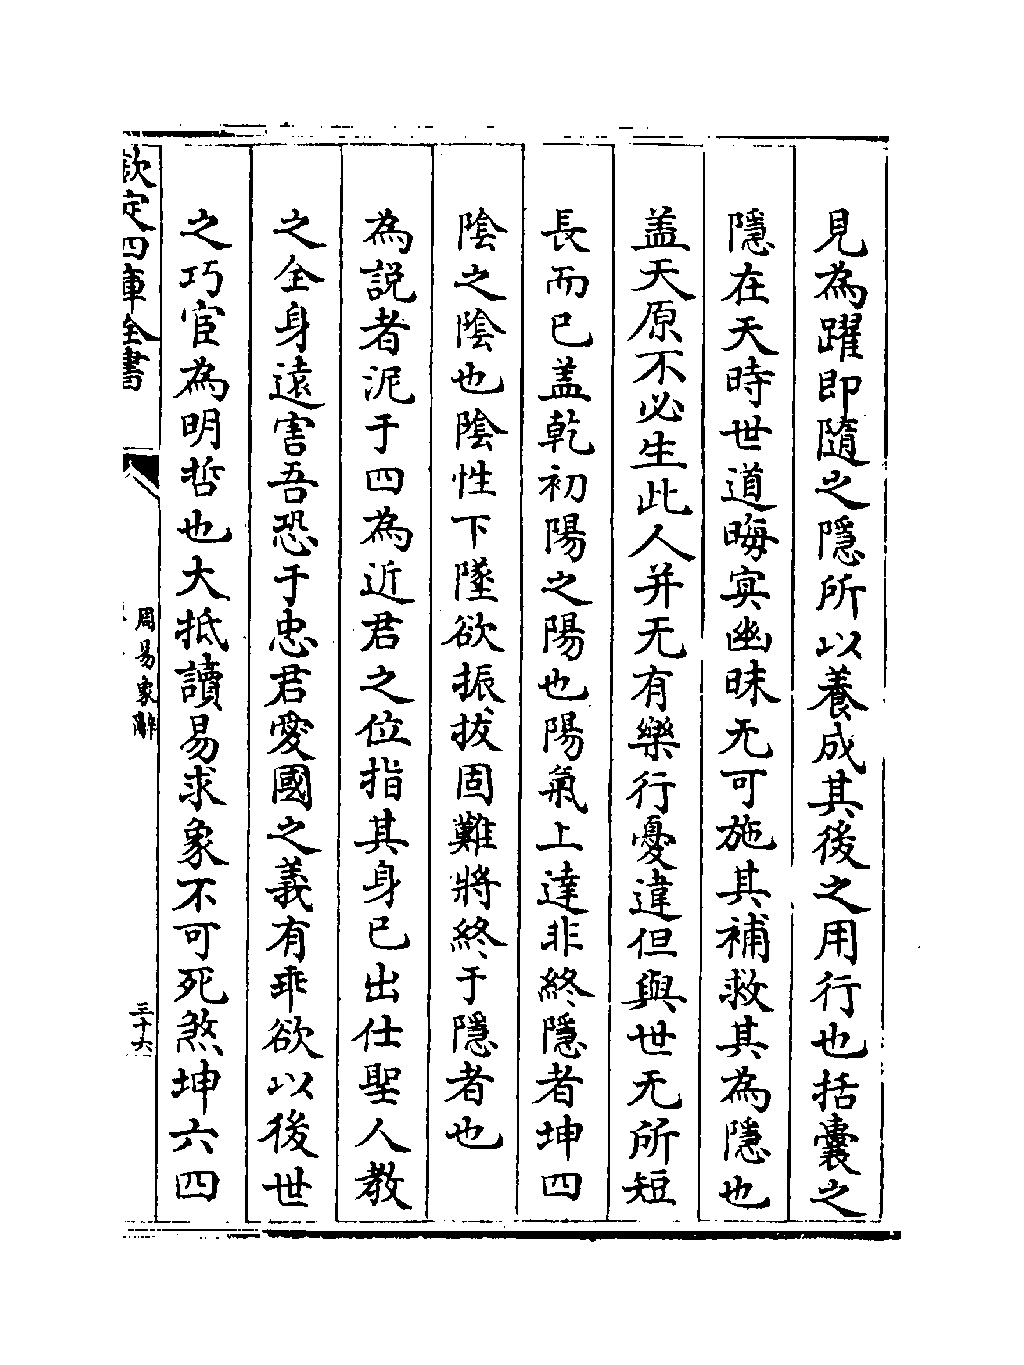 見為躍即隨之隱所以養成其後之用行也括囊之
隱在天時世道晦㝠幽昧无可施其補救其為隱也
盖天原不必生此人并无有樂行憂違但與世无所短
長而已盖乾初陽之陽也陽氣上達非終隱者坤四
陰之陰也陰性下墜欲振拔固難將終于隱者也
為説者泥于四為近君之位指其身已出仕聖人教
之全身遠害吾恐于忠君愛國之義有乖欲以後世
之巧宦為明哲也大抵讀易求象不可死煞坤六四
欽定四庫全書
周易象辭
三十六